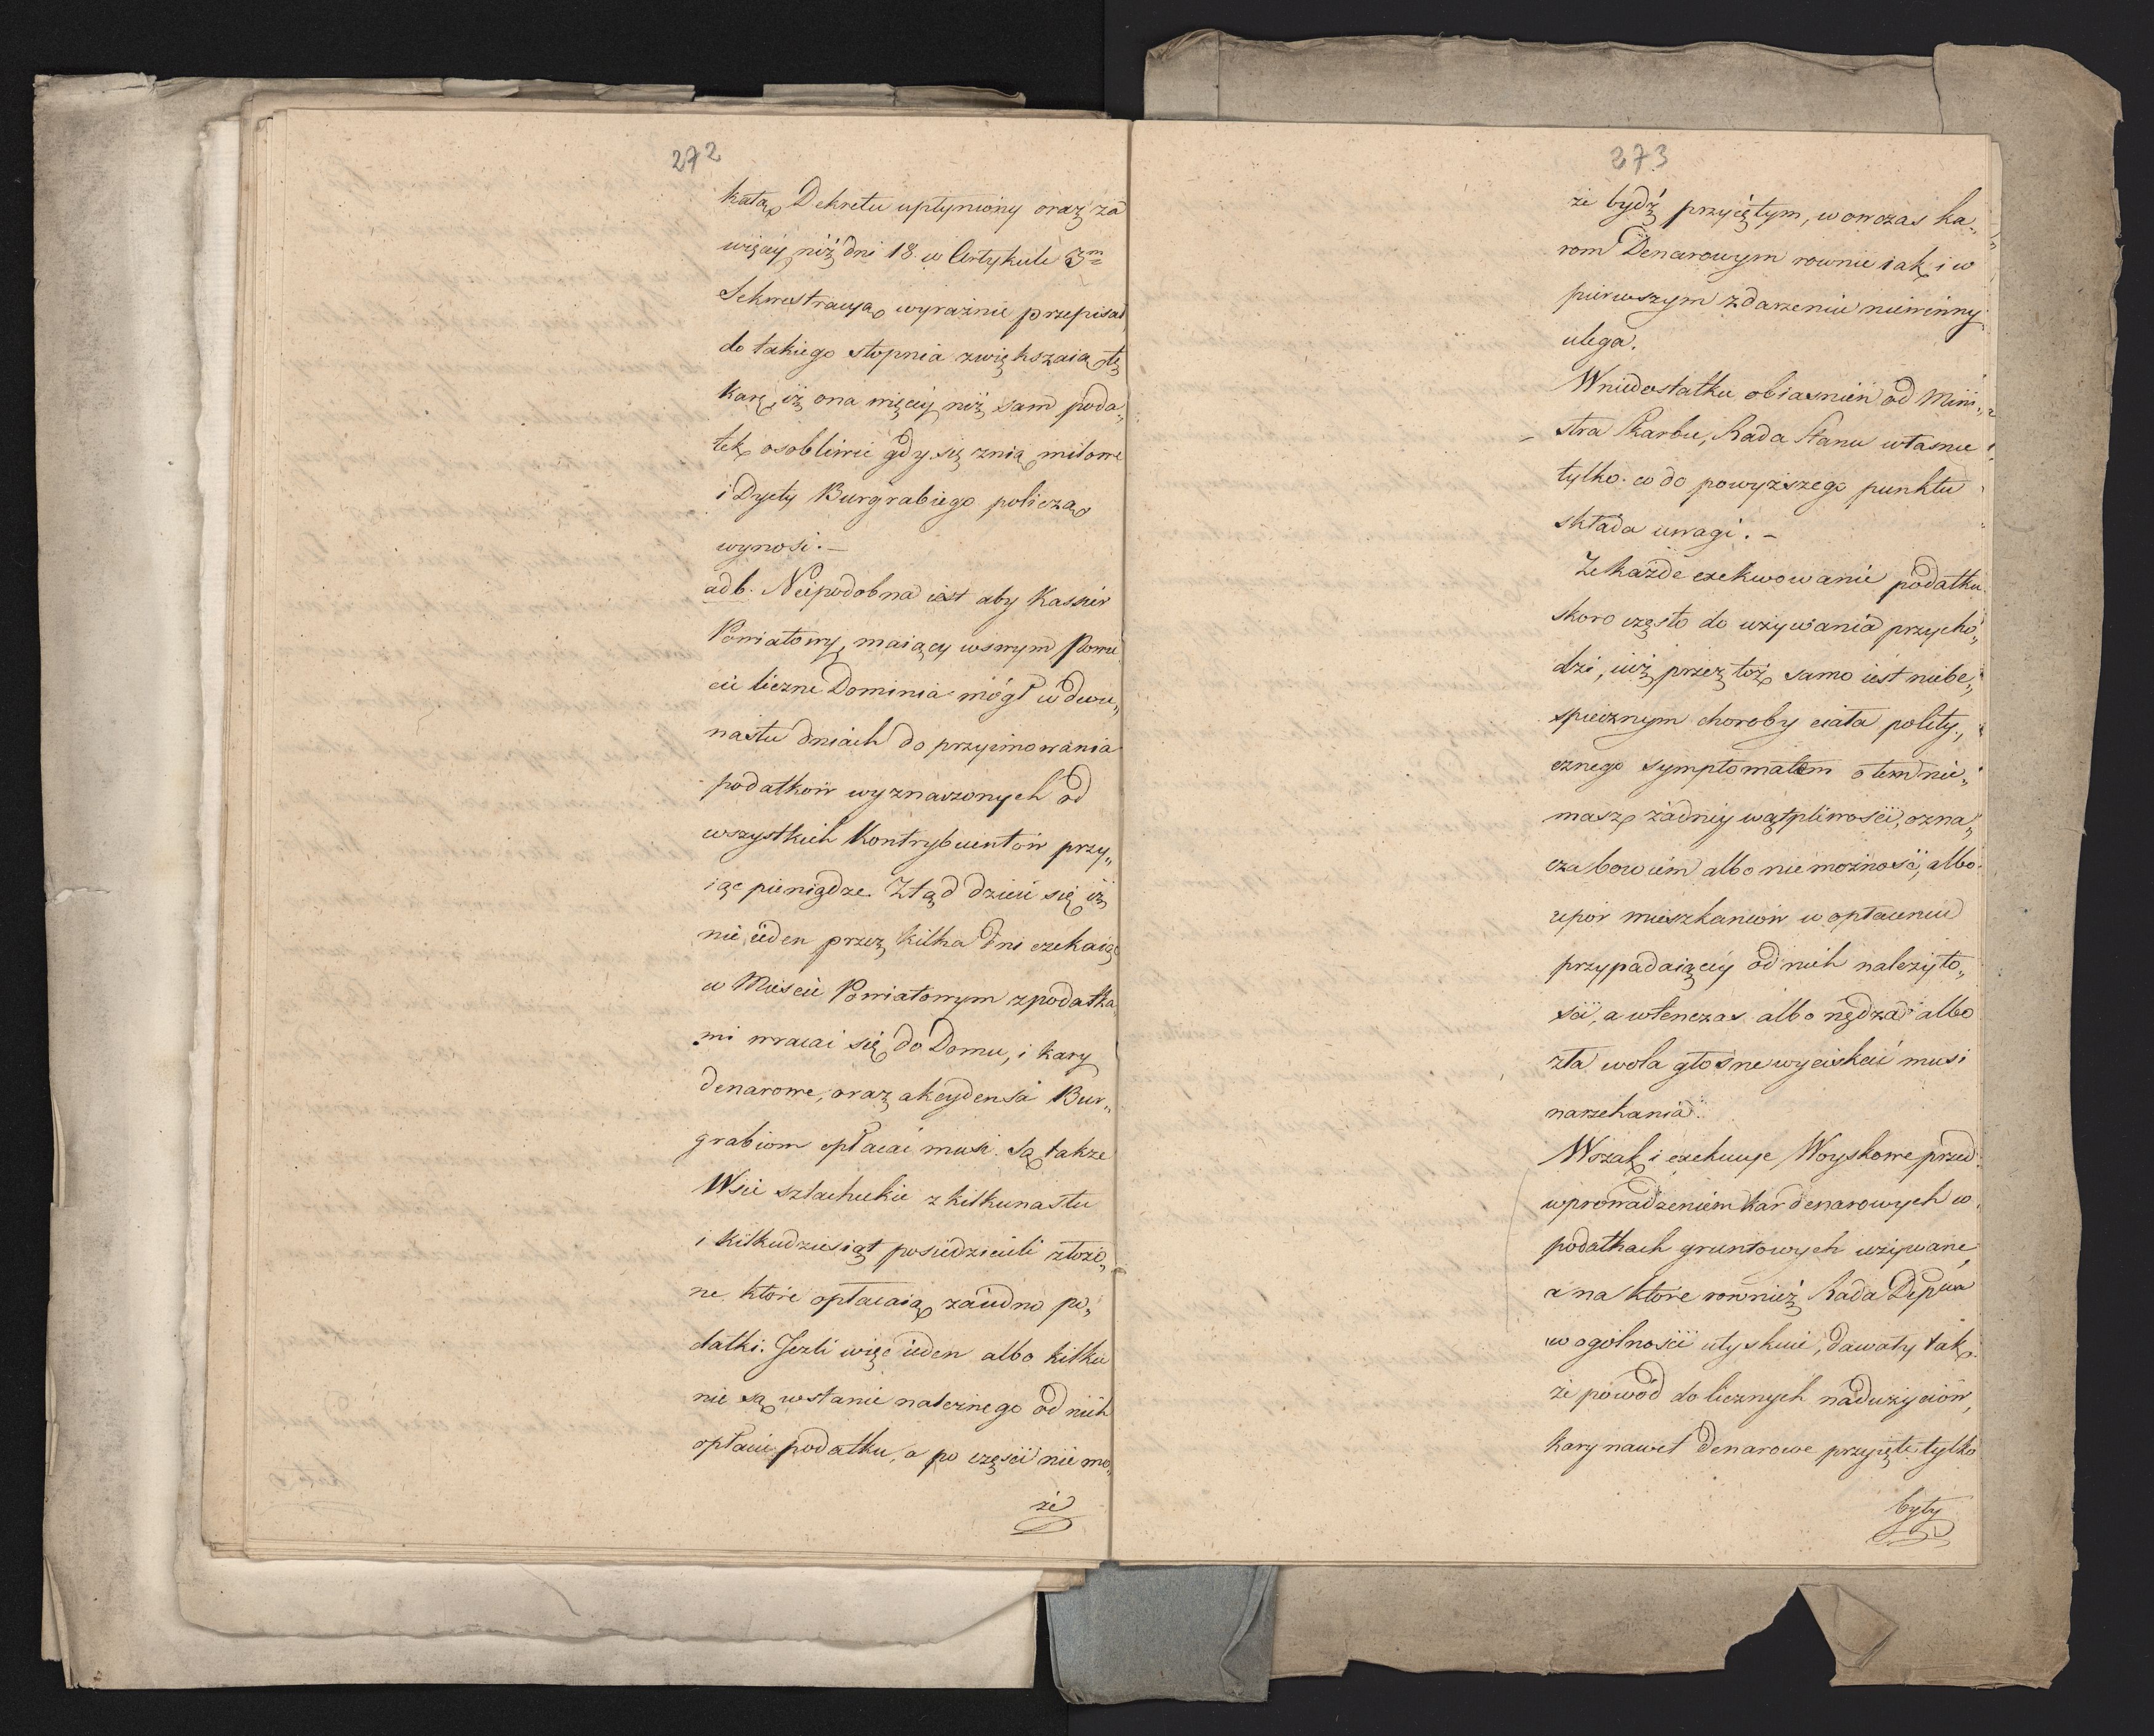 272
katą Dekretu upłyniony oraz za
więcey niż dni 18. w Artykule 3m
Sekwestracyą wyraźnie przepisał
do takiego stopnia zwiększaią tę
karę, iż ona więcey niż sam poda„
tek osobliwie gdy się znią milowe
i Dyety Burgrabiego policzą
wynosi. —
ad b. Niepodobna iest aby Kassier
Powiatowy, maiący wswym Powie
cie liczne Dominia mógł w dwu„
nastu dniach do przyimowania
podatków wyznaczonych od
wszystkich Kontrybuentów przy„
iąć pieniądze. Ztąd dzieie się iż
nie ieden przez kilka dni czekaiąc
w Mieście Powiatowym zpodatka
mi wracać się do Domu, i kary
denarowe, oraz akcydensa Bur„
grabiom opłacać musi. Są także
Wsie szlacheckie z kilkunastu
i kilkudziesiąt posiedzicieli złożo„
ne które opłacaią zaiedno po„
datki. Jezli więc ieden albo kilku
nie są wstanie należnego od nich
opłacić podatku, a po części nie mo„
że
273
że bydź przyiętym, wowczas ka„
rom Denarowym rownie iak i w
pierwszym zdarzeniu niewinny
ulega.
Wniedostatku obiasnień od Mini„
stra Skarbu, Rada Stanu własnie
tylko co do powyższego punktu
składa uwagi. —
Że każde exekwowanie podatku
skoro często do używania przycho„
dzi, iuż przez toż samo iest niebe„
spiecznym choroby ciała polity„
cznego symptomatem o tem nie„
masz żadney wątpliwości, ozna„
cza bowiem albo niemożność, albo
upór mieszkanców w opłaceniu
przypadaiącey od nich należyto„
ści, a wtenczas albo nędza albo
zła wola głośne wyciskać musi
narzekania.
Wszak i exekucye Woyskowe przed
wprowadzeniem kar denarowych w
podatkach gruntowych używane,
a na które również Rada Depwa
w ogólności utyskuie, dawały tak
że powód do licznych nadużyciów,
kary nawet denarowe przyięte tylko
były